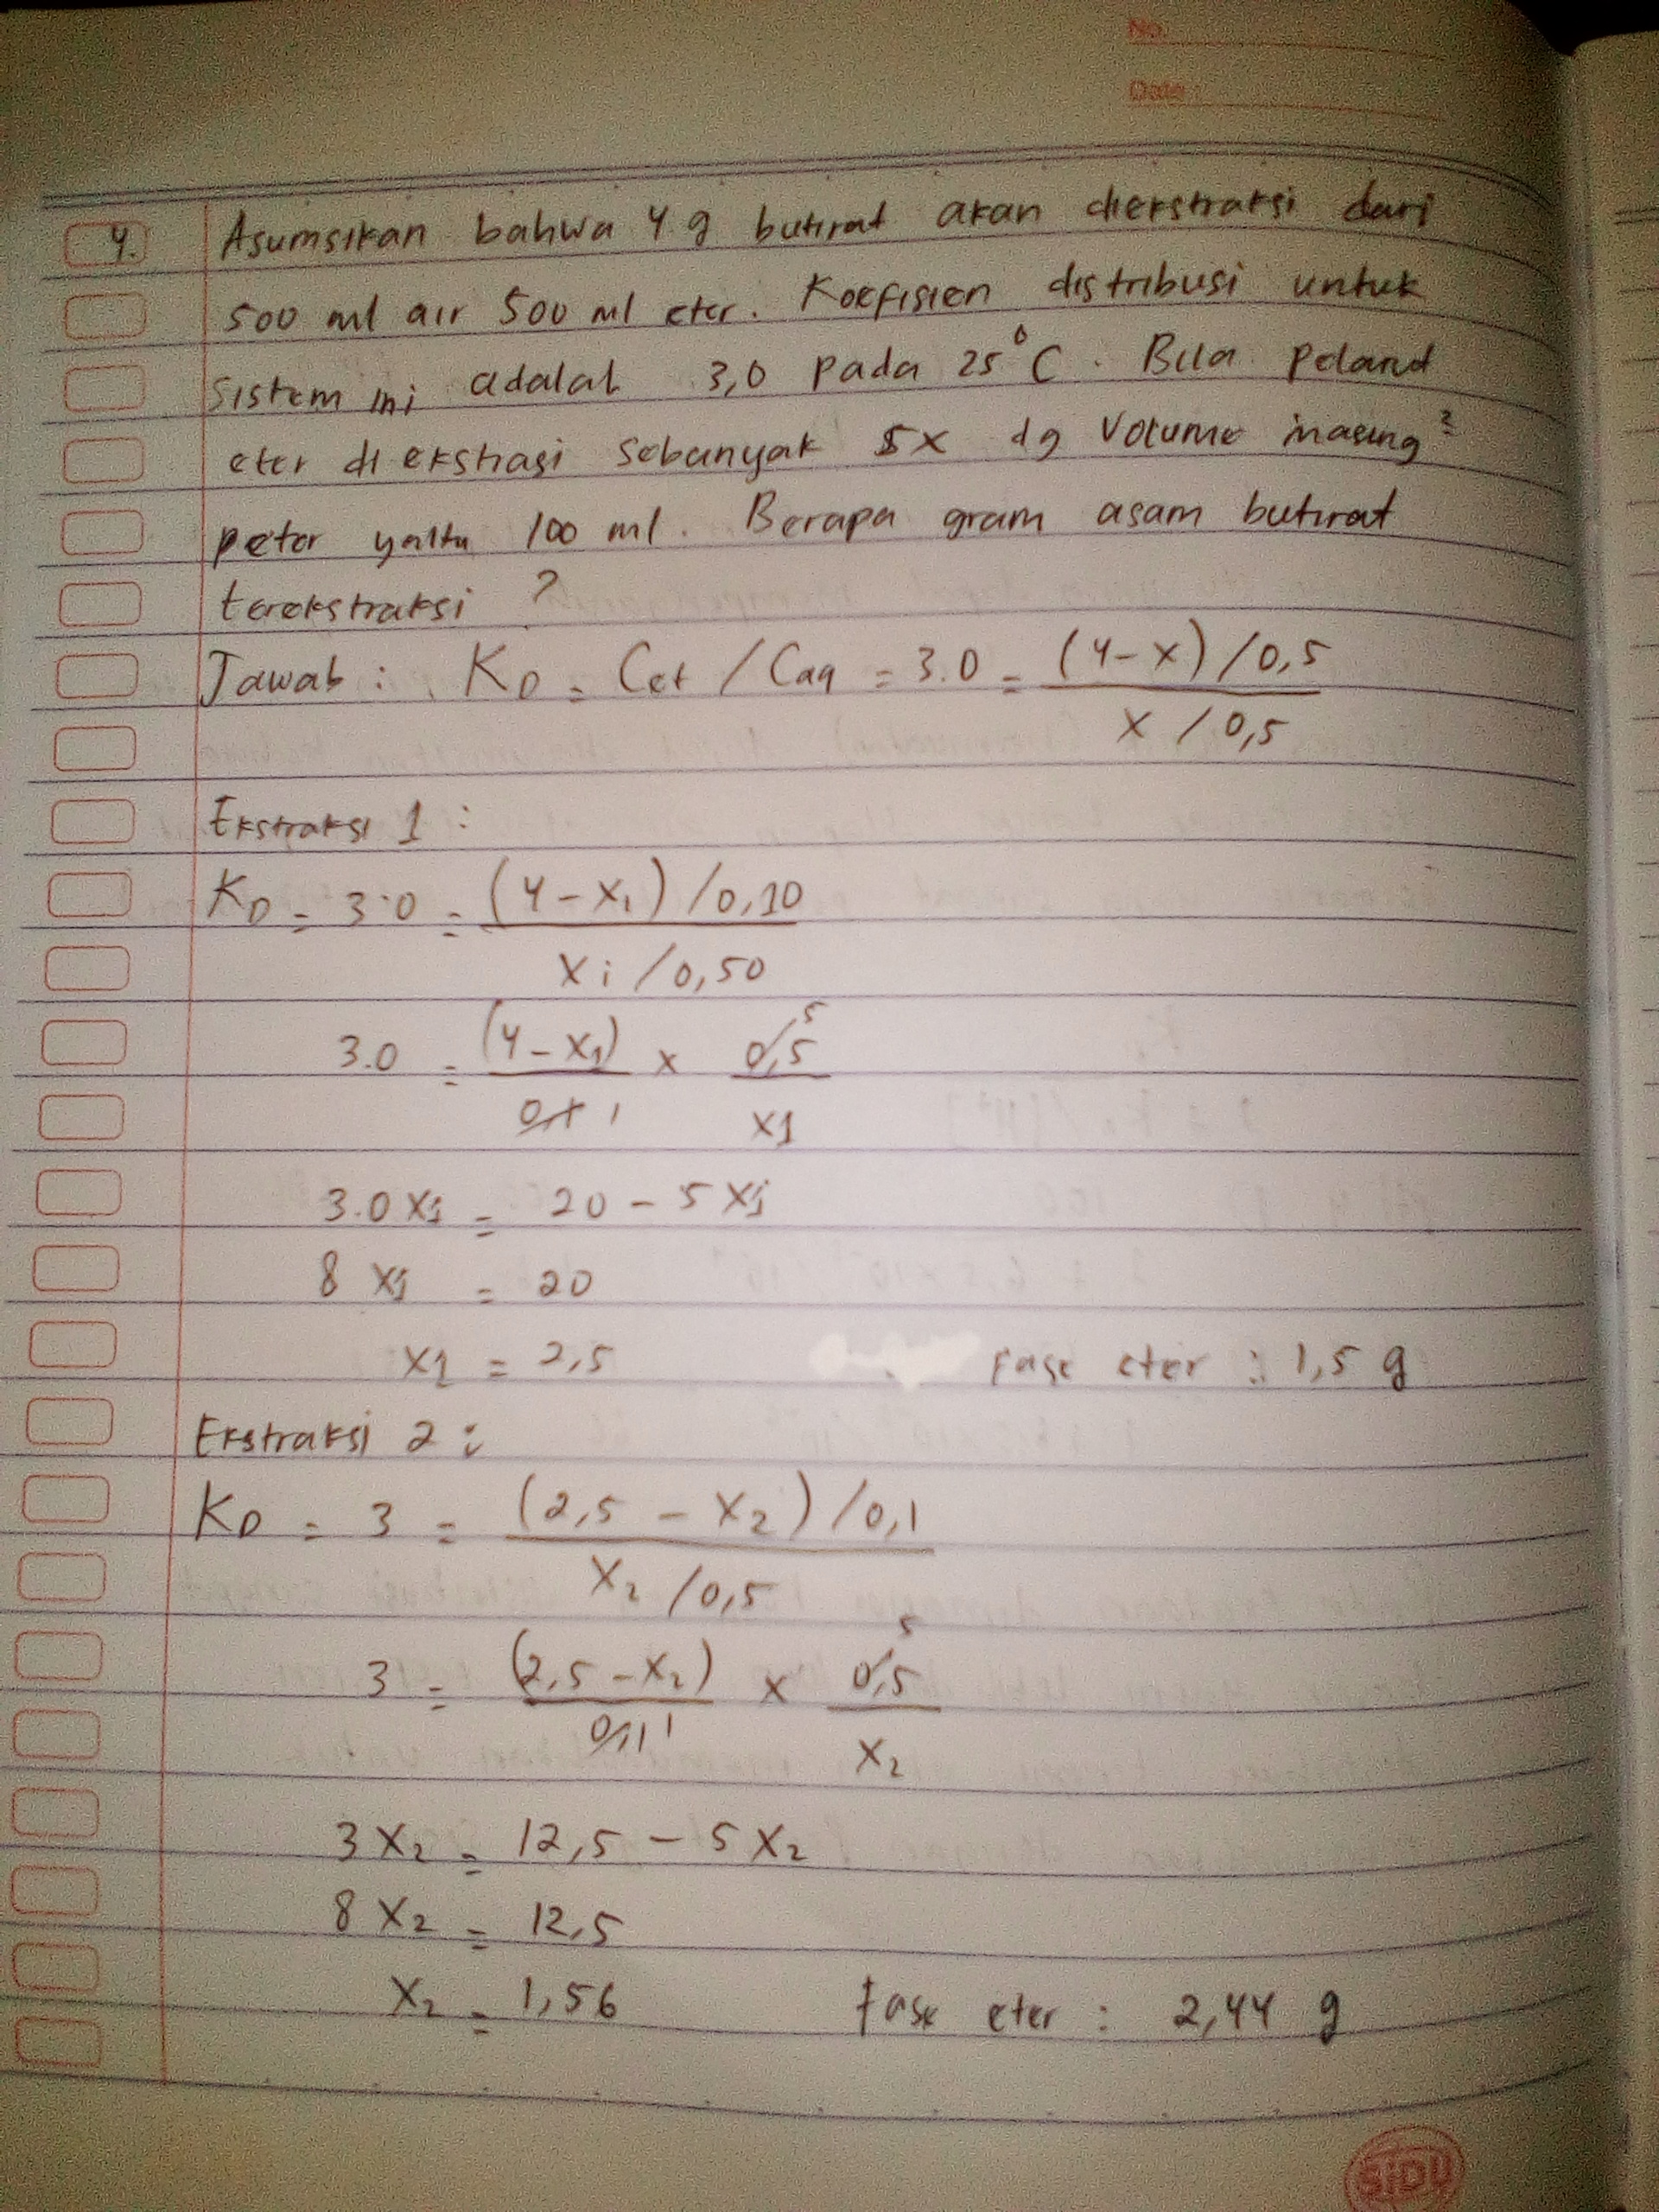 No.
Date :
4. Asumsikan bahwa 4 g butirat akan diekstraksi dari
500 ml air 500 ml eter. Koefisien distribusi untuk
sistem ini adalah 3,0 pada 25°C. Bila pelarut
eter di ekstrasi sebanyak 5x dg volume masing²
peter yaitu 100 ml. Berapa gram asam butirat
terekstraksi ?
Jawab : KD = Cet / Caq = 3.0 = (4-x) / 0,5
x / 0,5
Ekstraksi 1 :
KD = 3.0 = (4-x1) / 0,10
x1 / 0,50
3.0 = (4-x1) x 0,5 5
0,1 1 x1
3.0 x1 = 20 - 5 x1
8 x1 = 20
x1 = 2,5 Fase eter : 1,5 g
Ekstraksi 2 :
KD = 3 = (2,5 - x2) / 0,1
x2 / 0,5
3 = (2,5 - x2) x 0,5 5
0,1 1 x2
3 x2 = 12,5 - 5 x2
8 x2 = 12,5
x2 = 1,56 Fase eter : 2,44 g
SiDU